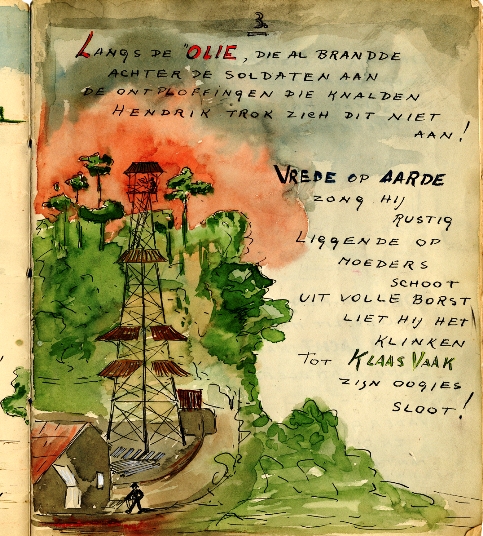 3.
LANGS DE "OLIE, DIE AL BRANDDE
ACHTER DE SOLDATEN AAN
DE ONTPLOFFINGEN DIE KNALDEN
HENDRIK TROK ZICH DIT NIET
AAN!
VREDE OP AARDE
ZONG HIJ
RUSTIG
LIGGENDE OP
MOEDERS
SCHOOT
UIT VOLLE BORST
LIET HIJ HET
KLINKEN
TOT KLAAS VAAK
ZIJN OOGJES
SLOOT!